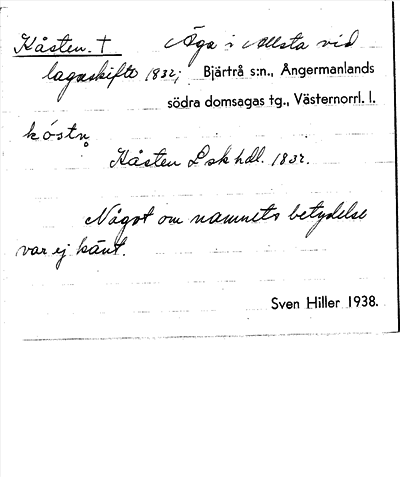 Kåsten. † Äga i Allsta vid
lagaskifte 1832; Bjärtrå s:n., Ångermanlands
södra domsagas tg., Västernorrl. l.
kó̀stn̥
Kåsten L sk hdl. 1832.
Något om namnets betydelse
var ej känt.
Sven Hiller 1938.